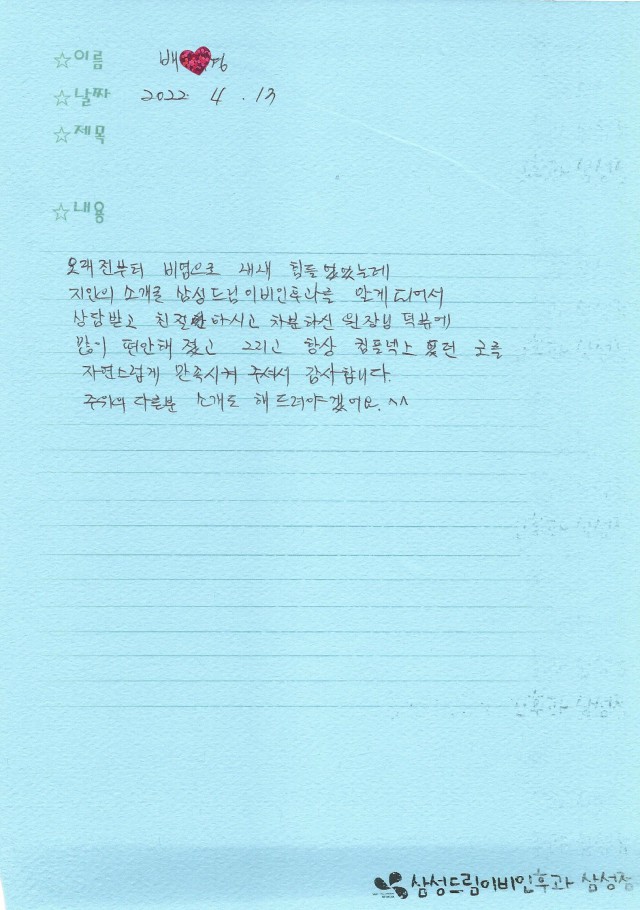 ☆이름 배
☆날짜 2022. 4. 13
☆제목
☆내용
오래전부터 비염으로 내내 힘들었었는데
지인의 소개로 삼성드림이비인후과를 알게 되어서
상담받고 친절하시고 차분하신 원장님 덕분에
많이 편안해 졌고 그리고 항상 컴플렉스 였던 코를
자연스럽게 만족시켜 주셔서 감사합니다.
주위의 다른분 소개도 해 드려야겠어요. ^^
삼성드림이비인후과 삼성점